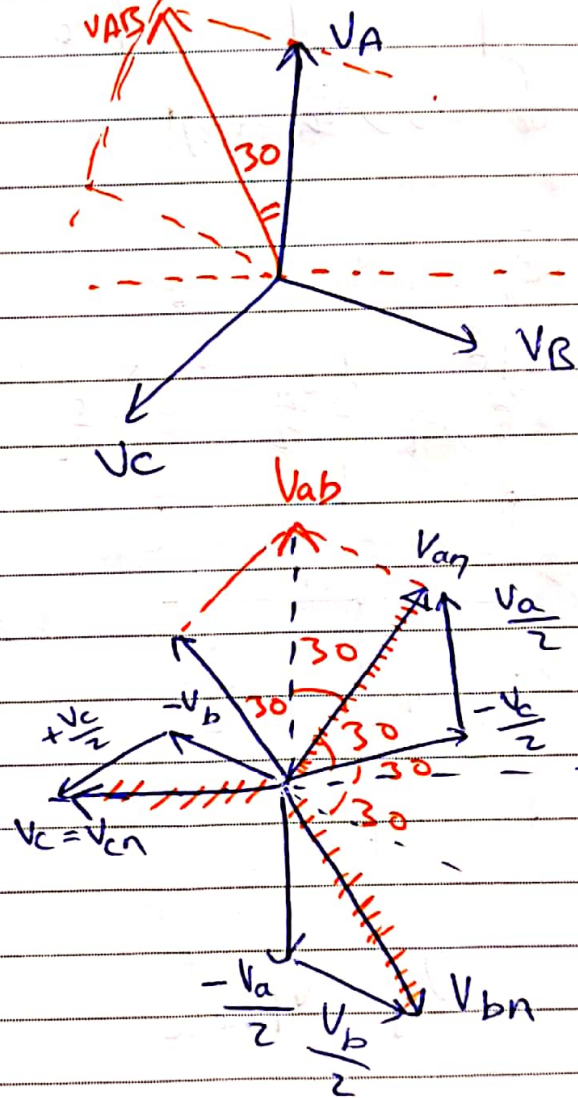 VAB
VA
30
VB
VC
Vab
Van
Va/2
30
30
-Vb
30
-Vc/2
+Vc/2
30
30
Vc = Vcn
-Va/2
Vb/2
Vbn